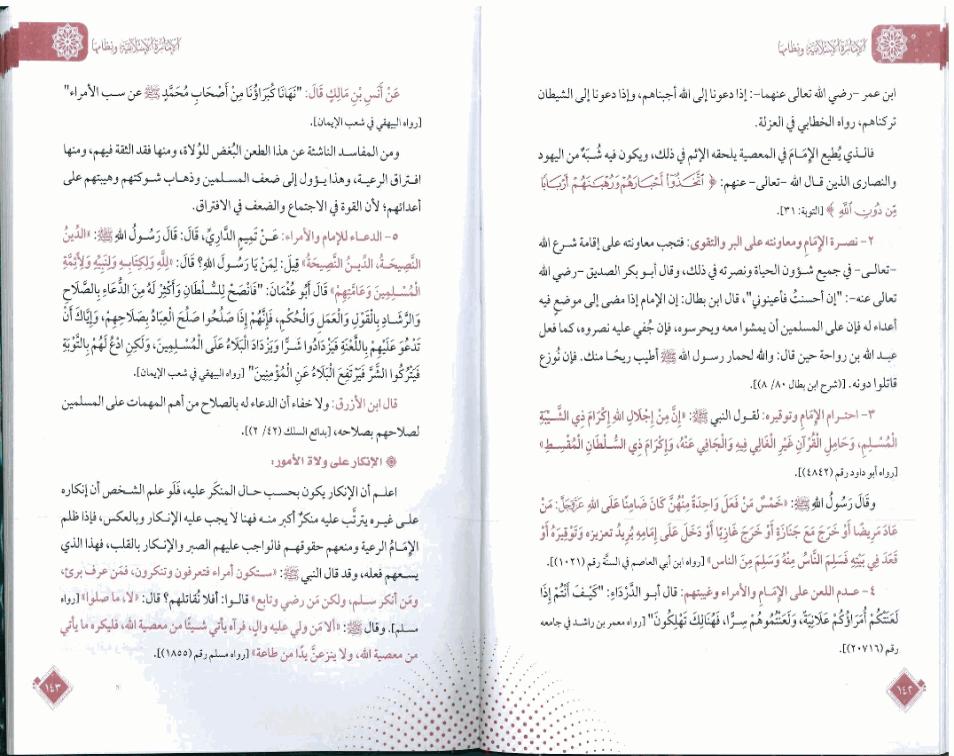 الإمارة الإسلامية ونظامها
ابن عمر -رضي الله تعالى عنهما-: إذا دعونا إلى الله أجبناهم، وإذا دعونا إلى الشيطان
تركناهم، رواه الخطابي في العزلة.
فالذي يُطيع الإمَامَ في المعصية يلحقه الإثم في ذلك، ويكون فيه شُبَهٌ من اليهود
والنصارى الذين قال الله -تعالى- عنهم: ﴿ ٱتَّخَذُوٓاْ أَحۡبَارَهُمۡ وَرُهۡبَٰنَهُمۡ أَرۡبَابٗا
مِّن دُونِ ٱللَّهِ ﴾ [التوبة: ٣١].
٢- نصرة الإمَامِ ومعاونته على البر والتقوى: فتجب معاونته على إقامة شرع الله
-تعالى- في جميع شؤون الحياة ونصرته في ذلك، وقال أبو بكر الصديق -رضي الله
تعالى عنه-: "إن أحسنتُ فأعينوني"، قال ابن بطال: إن الإمام إذا مضى إلى موضع فيه
أعداء له فإن على المسلمين أن يمشوا معه ويحرسوه، فإن جُفي عليه نصروه، كما فعل
عبد الله بن رواحة حين قال: والله لحمار رسول الله ﷺ أطيب ريحًا منك. فإن نُوزع
قاتلوا دونه. [(شرح ابن بطال ٨٠/ ٨)].
٣- احترام الإمَامِ وتوقيره: لقول النبي ﷺ: «إِنَّ مِنْ إِجْلَالِ اللهِ إِكْرَامَ ذِي الشَّيْبَةِ
الْمُسْلِمِ، وَحَامِلِ الْقُرْآنِ غَيْرِ الْغَالِي فِيهِ وَالْجَافِي عَنْهُ، وَإِكْرَامَ ذِي السُّلْطَانِ الْمُقْسِطِ»
[رواه أبو داود رقم (٤٨٤٢)].
وقَالَ رَسُولُ اللهِ ﷺ: «خَمْسٌ مَنْ فَعَلَ وَاحِدَةً مِنْهُنَّ كَانَ ضَامِنًا عَلَى اللهِ عَزَّوَجَلَّ: مَنْ
عَادَ مَرِيضًا أَوْ خَرَجَ مَعَ جَنَازَةٍ أَوْ خَرَجَ غَازِيًا أَوْ دَخَلَ عَلَى إِمَامِهِ يُرِيدُ تعزيزه وَتَوْقِيرَهُ أَوْ
قَعَدَ فِي بَيْتِهِ فَسَلِمَ النَّاسُ مِنْهُ وَسَلِمَ مِنَ الناس» [رواه ابن أبي العاصم في السنَّة رقم (١٠٢١)].
٤- عدم اللعن على الإمَامِ والأمراء وغيبتهم: قال أبو الدَّرْدَاءِ: "كَيْفَ أَنْتُمْ إِذَا
لَعَنَتْكُمْ أُمَرَاؤُكُمْ عَلَانِيَةً، وَلَعَنْتُمُوهُمْ سِرًّا، فَهُنَالِكَ تَهْلِكُونَ" [رواه معمر بن راشد في جامعه
رقم (٢٠٧١٦)].
١٤٢
الإمارة الإسلامية ونظامها
عَنْ أَنَسِ بْنِ مَالِكٍ قَالَ: "نَهَانَا كُبَرَاؤُنَا مِنْ أَصْحَابِ مُحَمَّدٍ ﷺ عن سب الأمراء"
[رواه البيهقي في شعب الإيمان].
ومن المفاسد الناشئة عن هذا الطعن البُغض للوُلاة، ومنها فقد الثقة فيهم، ومنها
افتراق الرعية، وهذا يؤول إلى ضعف المسلمين وذهاب شوكتهم وهيبتهم على
أعدائهم؛ لأن القوة في الاجتماع والضعف في الافتراق.
٥- الدعاء للإمام والأمراء: عَنْ تَمِيمٍ الدَّارِيِّ، قَالَ: قَالَ رَسُولُ اللهِ ﷺ: «الدِّينُ
النَّصِيحَةُ، الدِّينُ النَّصِيحَةُ» قِيلَ: لِمَنْ يَا رَسُولَ اللهِ؟ قَالَ: «لِلَّهِ وَلِكِتَابِهِ وَلِنَبِيِّهِ وَلِأَئِمَّةِ
الْمُسْلِمِينَ وَعَامَّتِهِمْ» قَالَ أَبُو عُثْمَانَ: "فَانْصَحْ لِلسُّلْطَانِ وَأَكْثِرْ لَهُ مِنَ الدُّعَاءِ بِالصَّلَاحِ
وَالرَّشَادِ بِالْقَوْلِ وَالْعَمَلِ وَالْحُكْمِ، فَإِنَّهُمْ إِذَا صَلُحُوا صَلَحَ الْعِبَادُ بِصَلَاحِهِمْ، وَإِيَّاكَ أَنْ
تَدْعُوَ عَلَيْهِمْ بِاللَّعْنَةِ فَيَزْدَادُوا شَرًّا وَيَزْدَادَ الْبَلَاءُ عَلَى الْمُسْلِمِينَ، وَلَكِنِ ادْعُ لَهُمْ بِالتَّوْبَةِ
فَيَتْرُكُوا الشَّرَّ فَيَرْتَفِعَ الْبَلَاءُ عَنِ الْمُؤْمِنِينَ" [رواه البيهقي في شعب الإيمان].
قال ابن الأزرق: ولا خفاء أن الدعاء له بالصلاح من أهم المهمات على المسلمين
لصلاحهم بصلاحه، [بدائع السلك (٤٢/ ٢)].
الإنكار على ولاة الأمور:
اعلم أن الإنكار يكون بحسب حال المنكَر عليه، فَلَو علم الشخص أن إنكاره
على غيره يترتَّب عليه منكرٌ أكبر منه فهنا لا يجب عليه الإنكار وبالعكس، فإذا ظلم
الإمَامُ الرعية ومنعهم حقوقهم فالواجب عليهم الصبر والإنكار بالقلب، فهذا الذي
يسعهم فعله، وقد قال النبي ﷺ: «ستكون أمراء فتعرفون وتنكرون، فمَن عرف برئ،
ومَن أنكر سلم، ولكن مَن رضي وتابع» قالوا: أفلا نُقاتلهم؟ قال: «لا، ما صلوا» [رواه
مسلم]. وقال ﷺ: «ألا مَن ولي عليه والٍ، فرآه يأتي شيئًا من معصية الله، فليكره ما يأتي
من معصية الله، ولا ينزعنَّ يدًا من طاعة» [رواه مسلم رقم (١٨٥٥)].
١٤٣